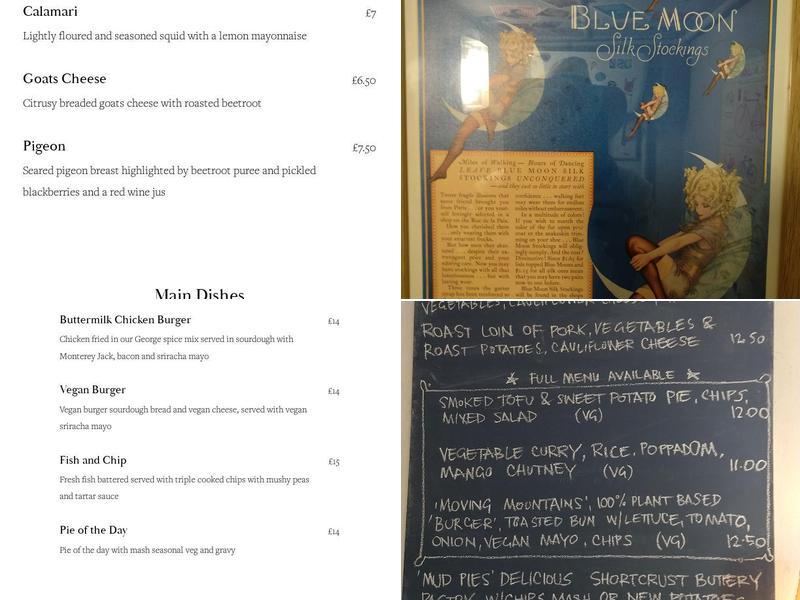 Calamari £7
Lightly floured and seasoned squid with a lemon mayonnaise
Goats Cheese £6.50
Citrusy breaded goats cheese with roasted beetroot
Pigeon £7.50
Seared pigeon breast highlighted by beetroot puree and pickled
blackberries and a red wine jus
Main Dishes
Buttermilk Chicken Burger £14
Chicken fried in our George spice mix served in sourdough with
Monterey Jack, bacon and sriracha mayo
Vegan Burger £14
Vegan burger sourdough bread and vegan cheese, served with vegan
sriracha mayo
Fish and Chip £15
Fresh fish battered served with triple cooked chips with mushy peas
and tartar sauce
Pie of the Day £14
Pie of the day with mash seasonal veg and gravy
BLUE MOON
Silk Stockings
Miles of Walking — Hours of Dancing
LEAVE BLUE MOON SILK
STOCKINGS UNCONQUERED
—and they cost so little to start with
VEGETABLES, CAULIFLOWER CHEESE
ROAST LOIN OF PORK, VEGETABLES &
ROAST POTATOES, CAULIFLOWER CHEESE 12.50
FULL MENU AVAILABLE
SMOKED TOFU & SWEET POTATO PIE, CHIPS,
MIXED SALAD (VG) 12.00
VEGETABLE CURRY, RICE, POPPADOM,
MANGO CHUTNEY (VG) 11.00
'MOVING MOUNTAINS', 100% PLANT BASED
'BURGER', TOASTED BUN W/LETTUCE, TOMATO,
ONION, VEGAN MAYO, CHIPS (VG) 12.50
'MUD PIES' DELICIOUS SHORTCRUST BUTTERY
PASTRY W/CHIPS MASH OR NEW POTATOES